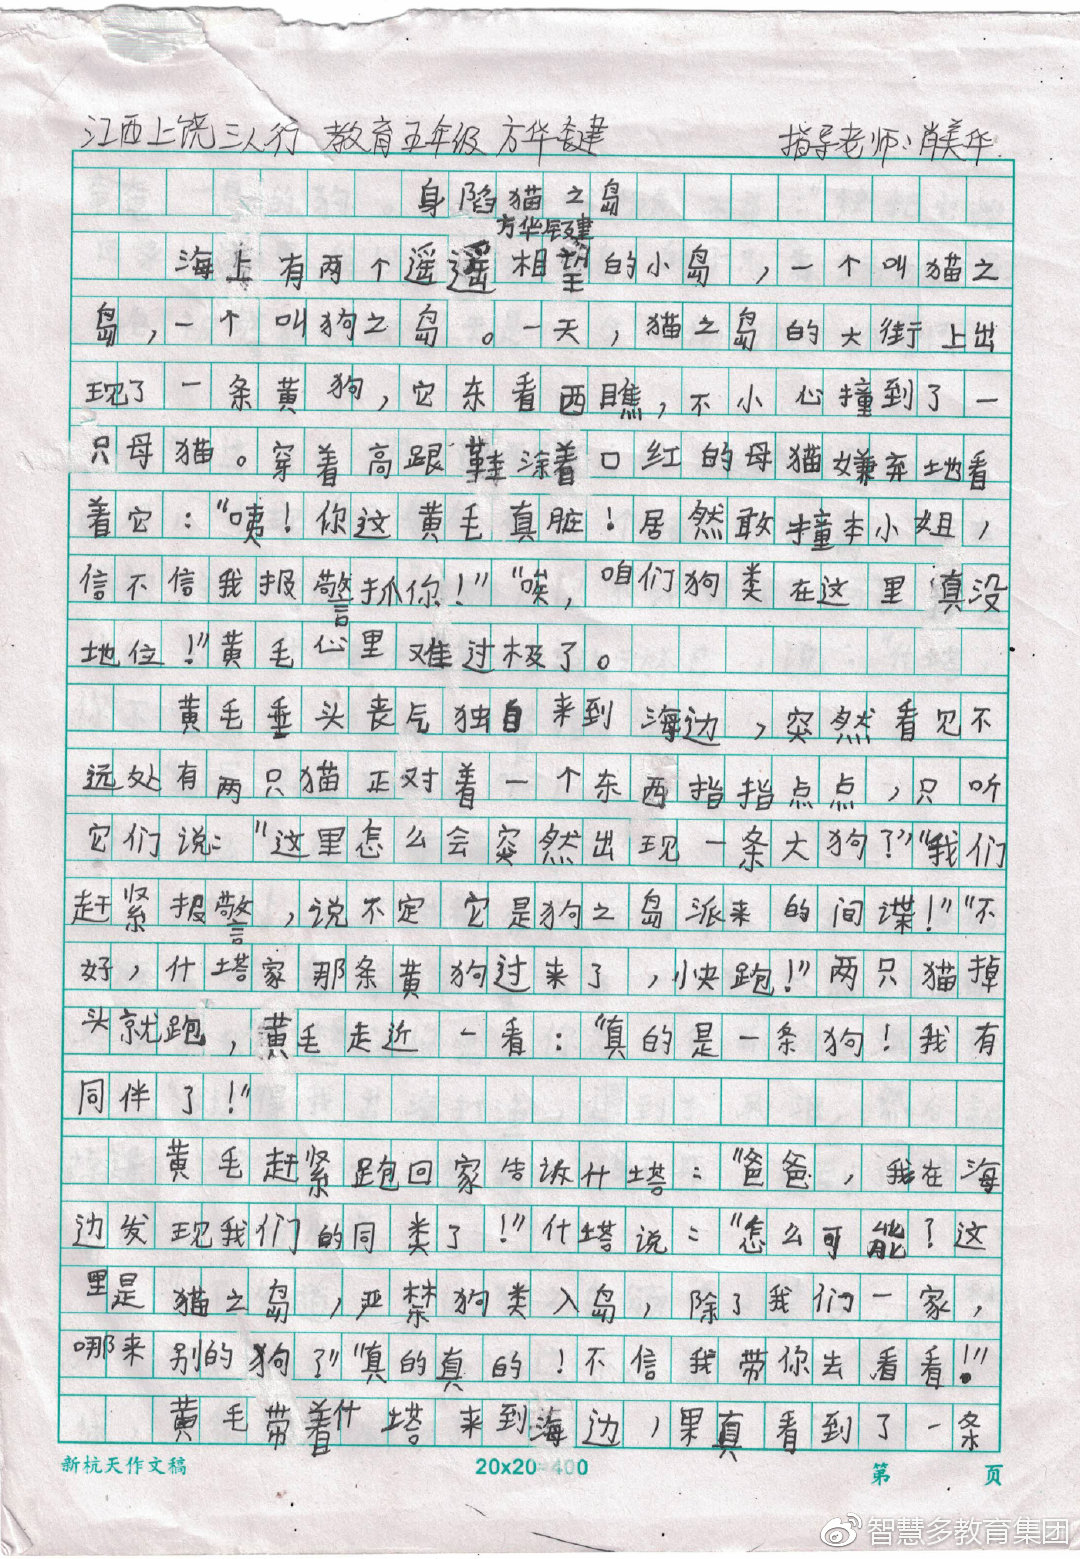 江西上饶三人行 教育五年级 方华建 指导老师：肖美华
身陷猫之岛
方华建
海上有两个遥遥相望的小岛，一个叫猫之
岛，一个叫狗之岛。一天，猫之岛的大街上出
现了一条黄狗，它东看西瞧，不小心撞到了一
只母猫。穿着高跟鞋涂着口红的母猫嫌弃地看
着它：“咦！你这黄毛真脏！居然敢撞本小姐，
信不信我报警抓你！”“唉，咱们狗类在这里真没
地位！”黄毛心里难过极了。
黄毛垂头丧气独自来到海边，突然看见不
远处有两只猫正对着一个东西指指点点，只听
它们说：“这里怎么会突然出现一条大狗？”“我们
赶紧报警，说不定它是狗之岛派来的间谍！”“不
好，什塔家那条黄狗过来了，快跑！”两只猫掉
头就跑，黄毛走近一看：“真的是一条狗！我有
同伴了！”
黄毛赶紧跑回家告诉什塔：“爸爸，我在海
边发现我们的同类了！”什塔说：“怎么可能？这
里是猫之岛，严禁狗类入岛，除了我们一家，
哪来别的狗？”“真的真的！不信我带你去看看！”
黄毛带着什塔来到海边，果真看到了一条
新杭天作文稿 20x20=400 第 页
智慧多教育集团